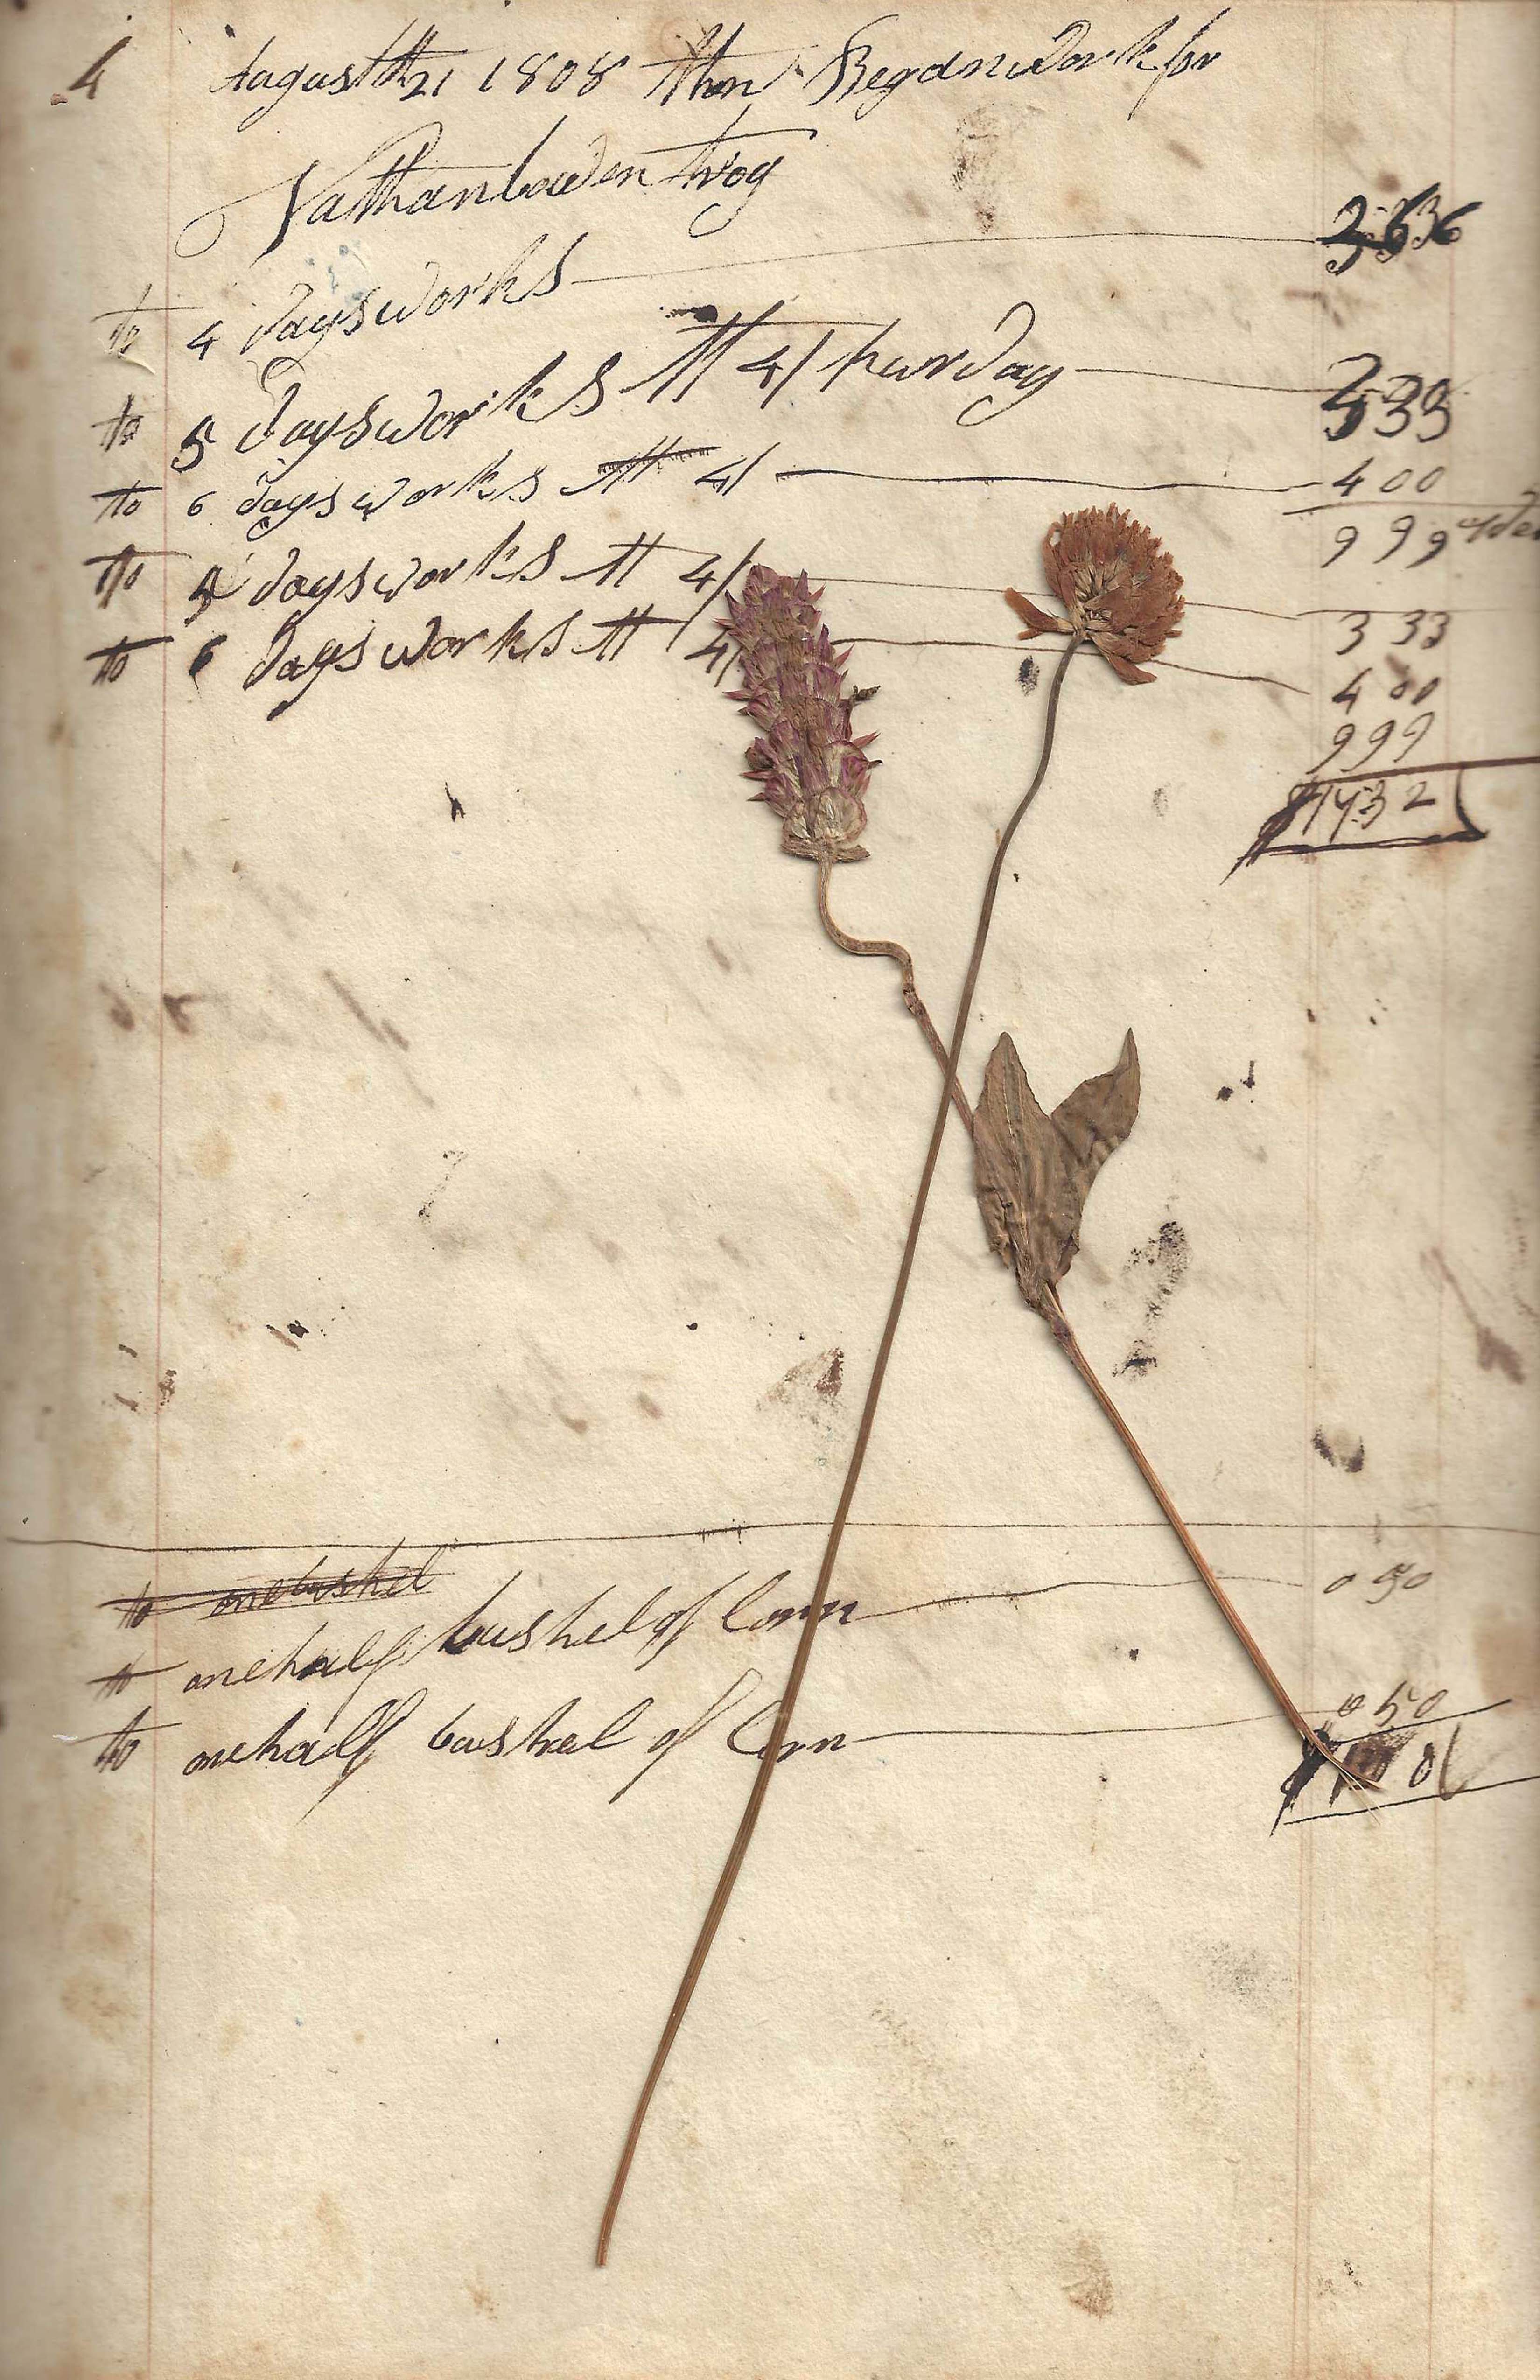 4 August th 21 1808 then Began work for
Nathan
to 4 days works 2 66
to 5 days works At 4/ pur day 3 33
to 6 days works At 4/ 4 00
9 99
to 5 days works At 4/ 3 33
to 6 days works At 4/ 4 00
9 99
to one bushel
to one half bushel of Corn 0 50
to one half bushel of Corn 0 50